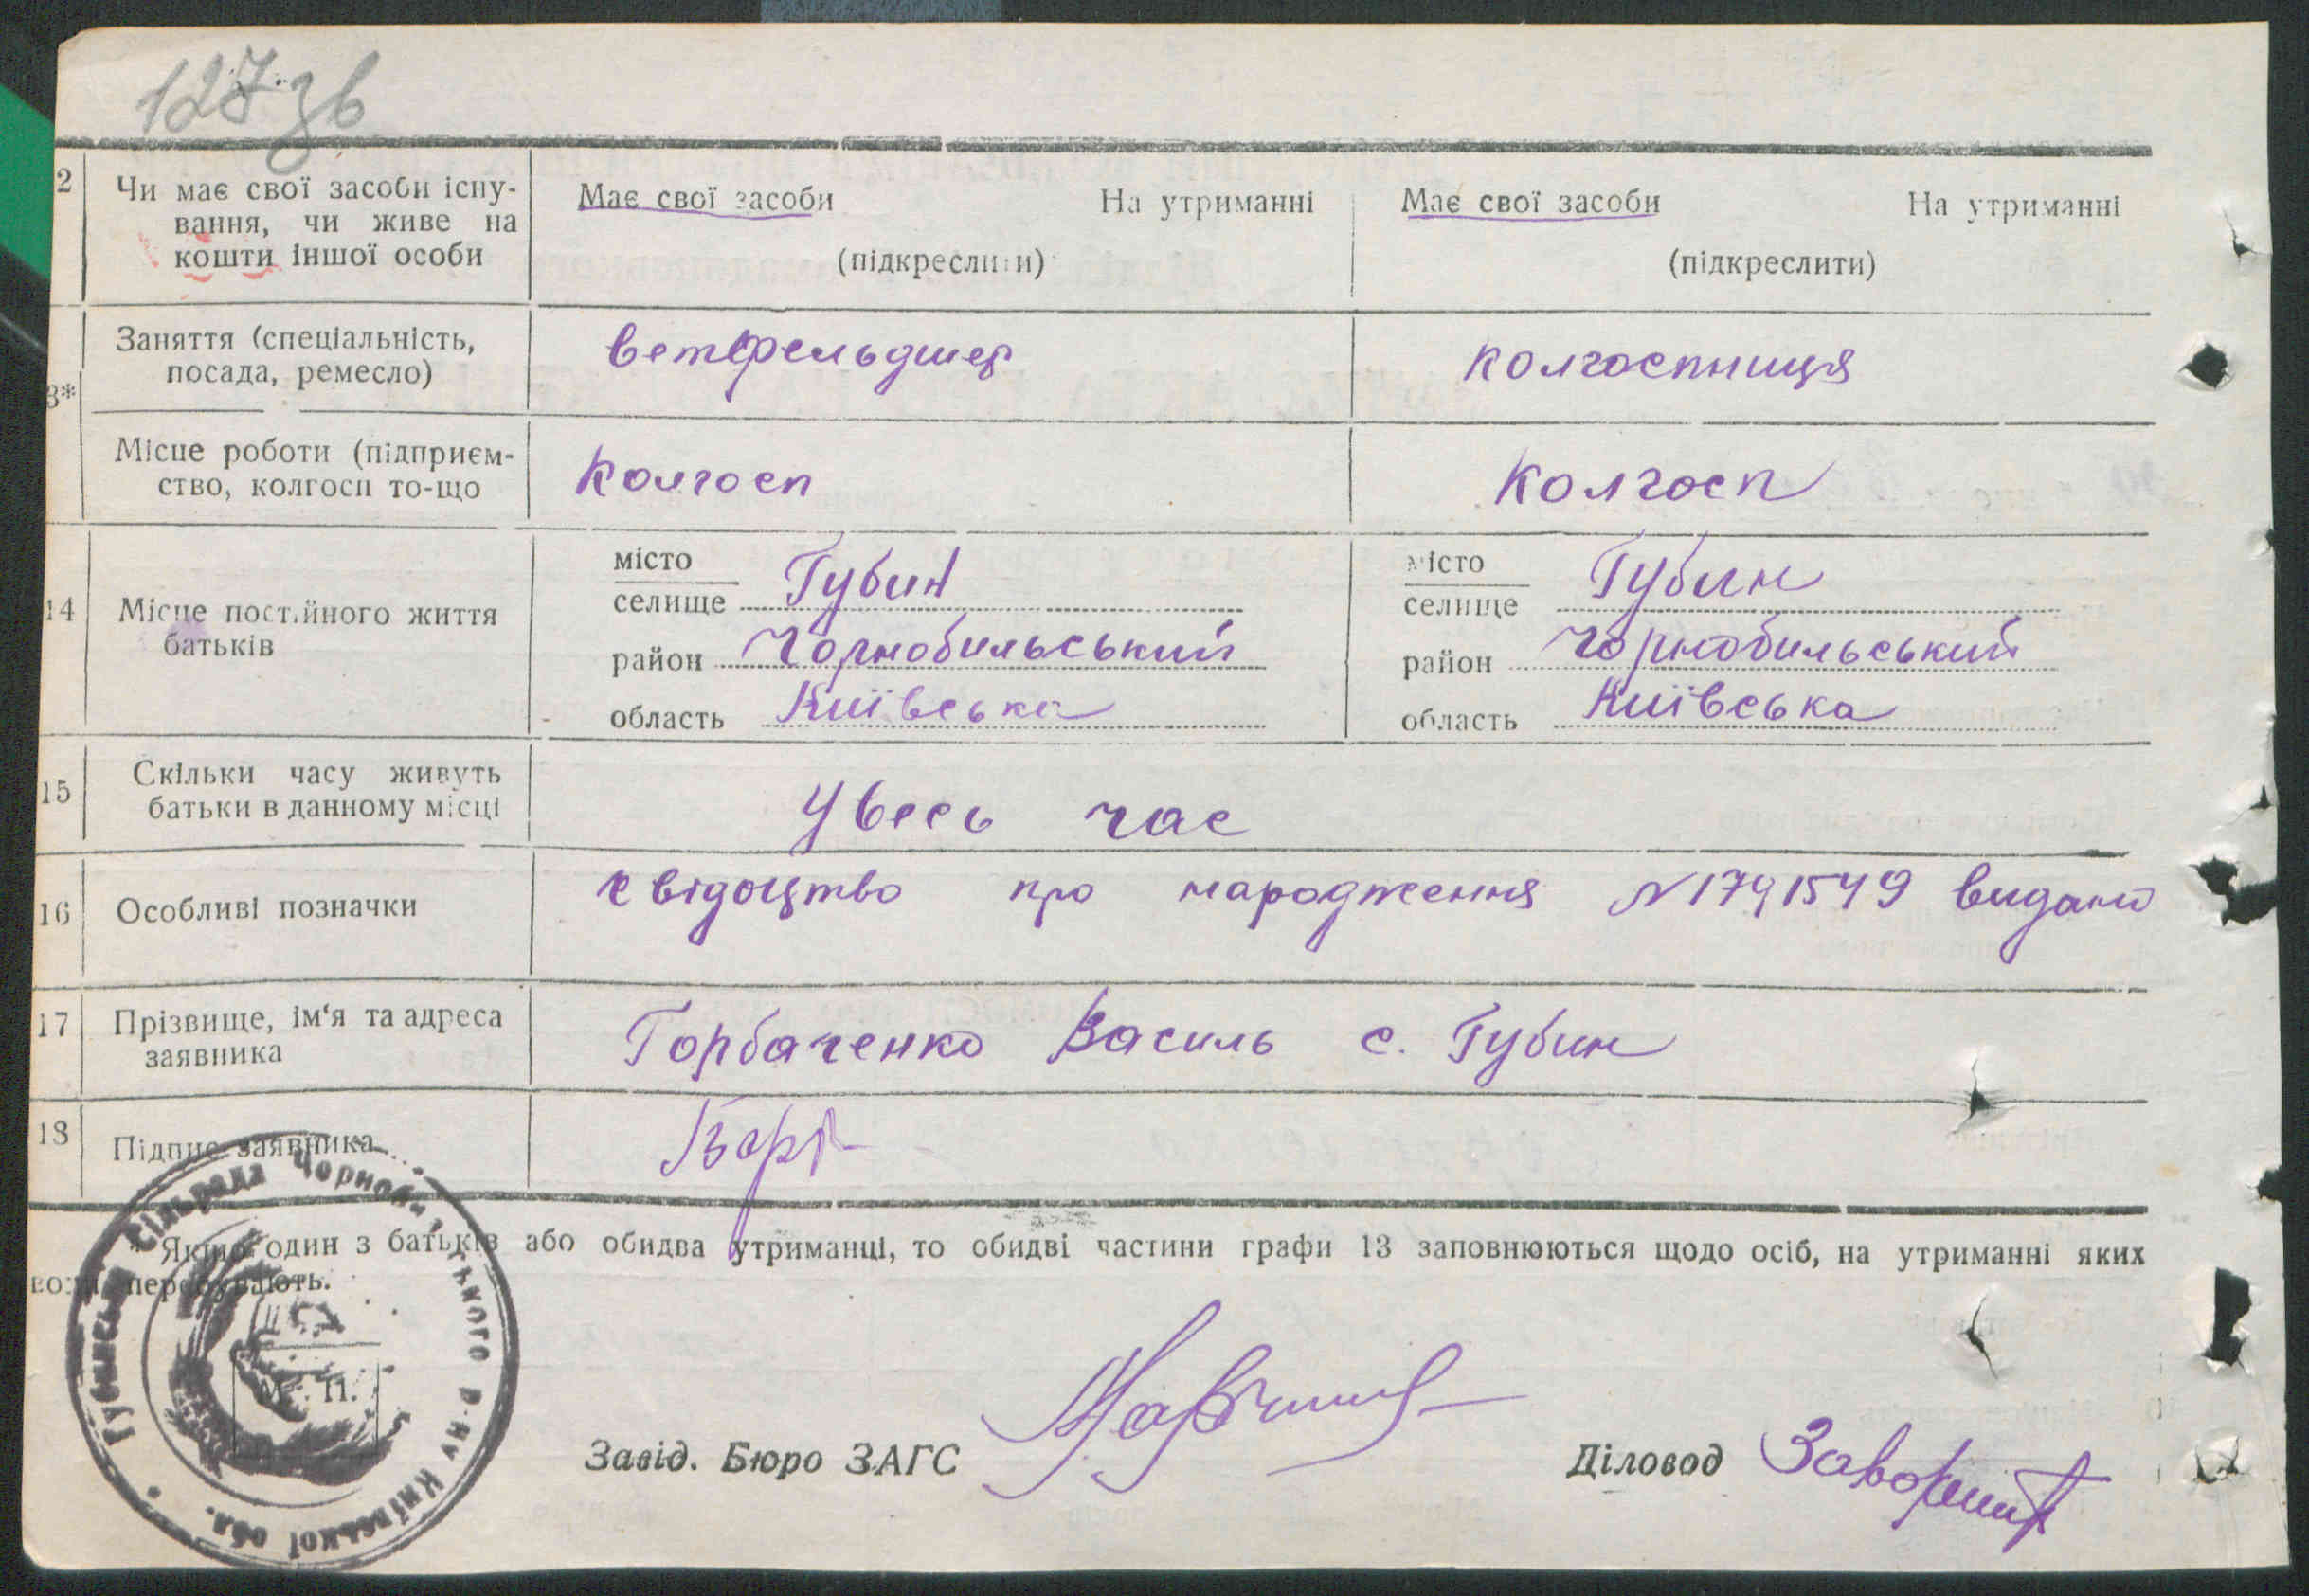 127 зв
2 Чи має свої засоби існу- Має свої засоби На утриманні Має свої засоби На утриманні
вання, чи живе на
кошти іншої особи (підкреслити) (підкреслити)
Заняття (спеціальність, ветфельдшер колгоспниця
посада, ремесло)
3*
Місце роботи (підприєм- колгосп колгосп
ство, колгосп то-що
14 Місце постійного життя місто Губин місто Губин
батьків селище селище
район Чорнобильський район Чорнобильський
область Київська область Київська
15 Скільки часу живуть увесь час
батьки в данному місці
16 Особливі позначки свідоцтво про народження N 1791549 видано
17 Прізвище, ім'я та адреса Горбаченко Василь с. Губин
заявника
18 Підпис заявника
* Якщо один з батьків або обидва утриманці, то обидві частини графи 13 заповнюються щодо осіб, на утриманні яких
вони перебувають.
Губинська Сільрада Чорнобильського р-ну Київської обл.
М. П.
Завід. Бюро ЗАГС Діловод